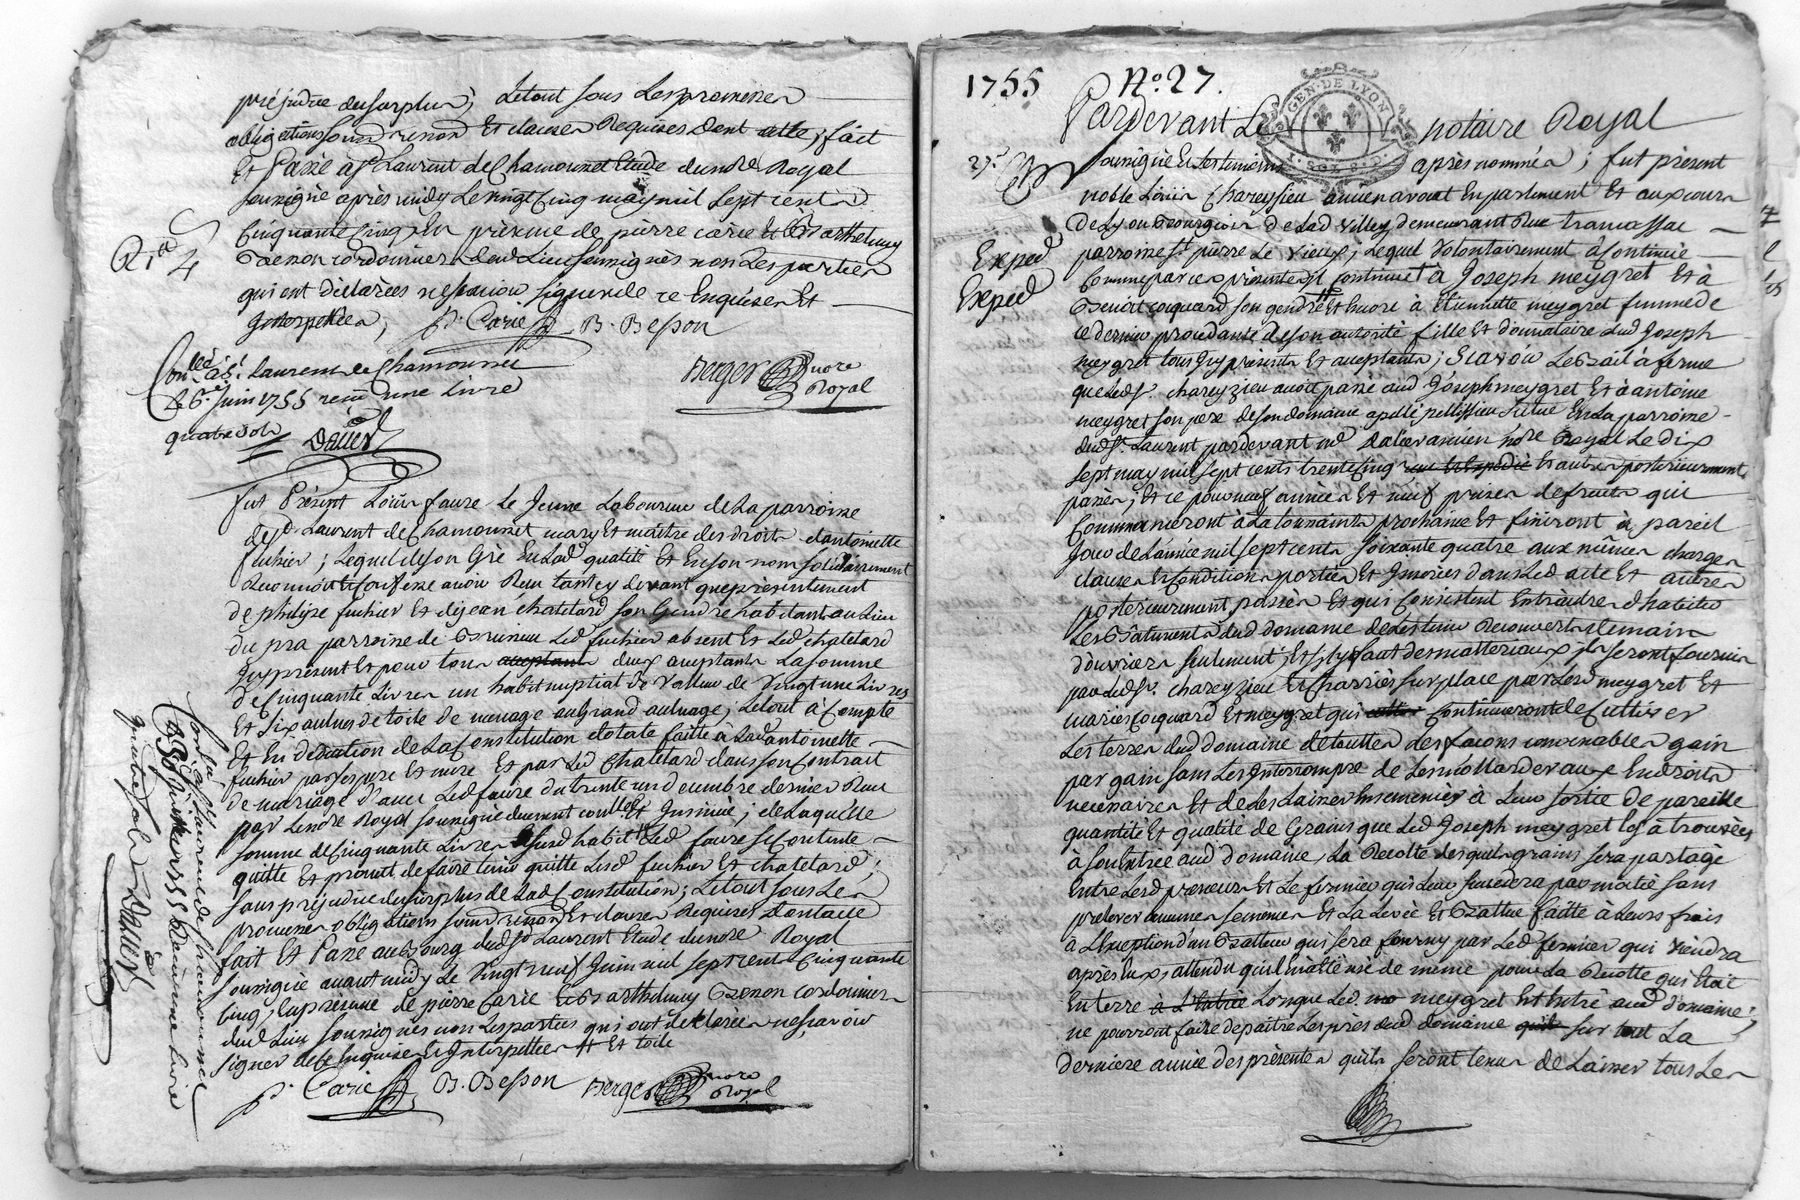 préjudice du surplus, Letout sous Les promesses
obligations soumon renon Et clauses Requises Dont acte, fait
Et Passé a St Laurent de Chamousset Etude du nore Royal
soussigné après midy Le vingt Cinq may mil Sept cents
Cinquante Cinq, En présence de pierre carie et Barthelemy
cordonniers dud Lieu soussignés non Les parties
qui ont déclarées ne sçavoir signer de ce Enquises Et
Interpellées,
P. Carie B. Besson
Berger nore
Royal
Ra 4
Conllé à St Laurent de Chamousset
Le 6e Juin 1755 reçu une Livre
quatre sols
Daller
fut Présent Louis faure Le Jeune Laboureur de La parroisse
de St Laurent de Chamousset mary Et maitre des droits d'antoinette
fuchier; Lequel de son Gré En Lad qualité Et En son nom solidairement
Reconnoit Et Confesse avoir Reçu tant cy devant que présentement
de philipe fuchier Et de jean chatelard son Gendre habitants au Lieu
du pra parroisse de Brussieu Led fuchier absent Et Led chatelard
Jcy présent Et pour tous acceptants deux acceptants La somme
de Cinquante Livres un habit nuptial de valleur de vingt une Livres
Et six aulnes de toile de menage au Grand aulnage, Letout à Compte
Et En déduction de La Constitution dotale faitte à Lad antoinette
fuchier par ses pere Et mere Et par Led Chatelard dans son Contrait
de mariage d'avec Led faure du trente un decembre dernier Reçu
par Le nore Royal soussigné duement conllé Et Insinué; de Laquelle
somme de Cinquante Livres Et sud habit Led faure se Contente
quitte Et promet de faire tenir quitte Lesd fuchier Et chatelard;
sans préjudice du surplus de Lad Constitution; Letout sous Les
promesses obligations soumon renon Et clauses Requises Dont acte
fait Et Passé au Bourg dud St Laurent Etude du nore Royal
soussigné avant midy Le vingt neuf Juin mil sept cents Cinquante
Cinq, En présence de pierre Carie Et Barthelemy cordonniers
dud Lieu soussignés non Les parties qui ont déclarées ne sçavoir
signer de ce Enquises Et Interpellées # Et toile
P. Carie B. Besson Berger nore
Royal
Conllé à St Laurent de Chamousset
Reçu une Livre
quatre sols Daller
1755 No. 27.
GEN. DE LYON
Pardevant Le notaire Royal
27e
soussigné Et Les temoins après nommés; fut présent
noble Louis Chareyzieu ancien avocat En parlement Et aux cours
De Lyon Bourgeois de Lad Ville y demeurant Rue tramassac
parroisse St pierre Le vieux; Lequel Volontairement à Continué
Comme par ces présentes il continue à Joseph meygret Et à
Exped
Exped
Benoit coquard son gendre Et encore à Etiennette meygret femme de
ce dernier procédante de son autorité fille Et donnataire dud Joseph
meygret tous Jcy présents Et acceptants; Sçavoir Le Bail à ferme
que Led Sr. chareyzieu avoit passé aud Joseph meygret Et à antoine
meygret son pere de son domaine apellé pellissieu situé En La parroisse
dud St. Laurent pardevant me Daller ancien nore Royal Le dix
sept may mil sept cents trente Cinq Et autres posterieurement
passés; Et ce pour neuf années Et neuf prises de fruits qui
Commanceront à La toussaints prochaine Et finiront à pareil
Jour de L'année mil sept cents soixante quatre aux mêmes charges
clauses Et Conditions portées Et Inserées dans Led acte Et autres
posterieurement passés Et qui Consistent Entr'autres d'habiter
Les Bâtiments dud domaine de Les tenir Recouverts de mains
d'ouvriers seulement; Et s'il y faut des matteriaux ils seront fournis
par Led Sr. chareyzieu Et Charriés sur place par Lesd meygret Et
mariés coquard Et meygret qui Continueront de Cultiver
Les terres dud domaine de touttes Les façons convenables gain
par gain sans Les Interrompre de Les mollarder aux Endroits
necessaires Et de Les Laisser Ensemencés à Leur sortie de pareille
quantité Et qualité de Grains que Led Joseph meygret Les a trouvées
à son Entrée aud domaine, La Recolte desquels grains sera partagé
Entre Lesd preneurs Et Le fermier qui Leur succedera par moitié sans
prelever aucunes semences Et La Levée Et Battue faitte à Leurs frais
à L'Exception d'un Batteur qui sera fourny par Led fermier qui viendra
après Eux, attendu qu'il en a été usé de même pour La Recolte qui Etoit
En terre Lorsque Led meygret Est Entré aud domaine;
ne pourront faire depaitre Les prés dud domaine sur tout La
derniere année des présentes qu'ils seront tenus de Laisser tous Les